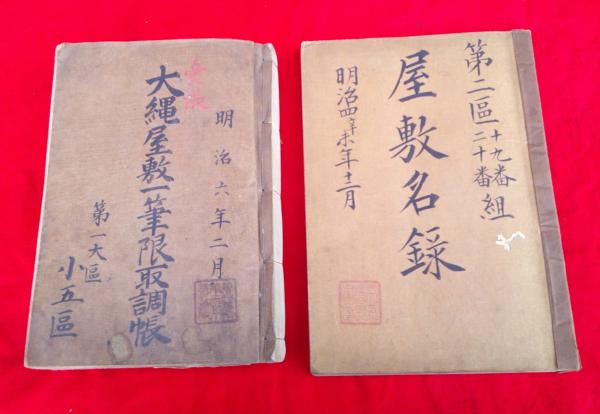 明治六年二月
大縄屋敷一筆限取調帳
第一大區
小五區
第二區十九番二十番組
屋敷名録
明治四辛未年十二月